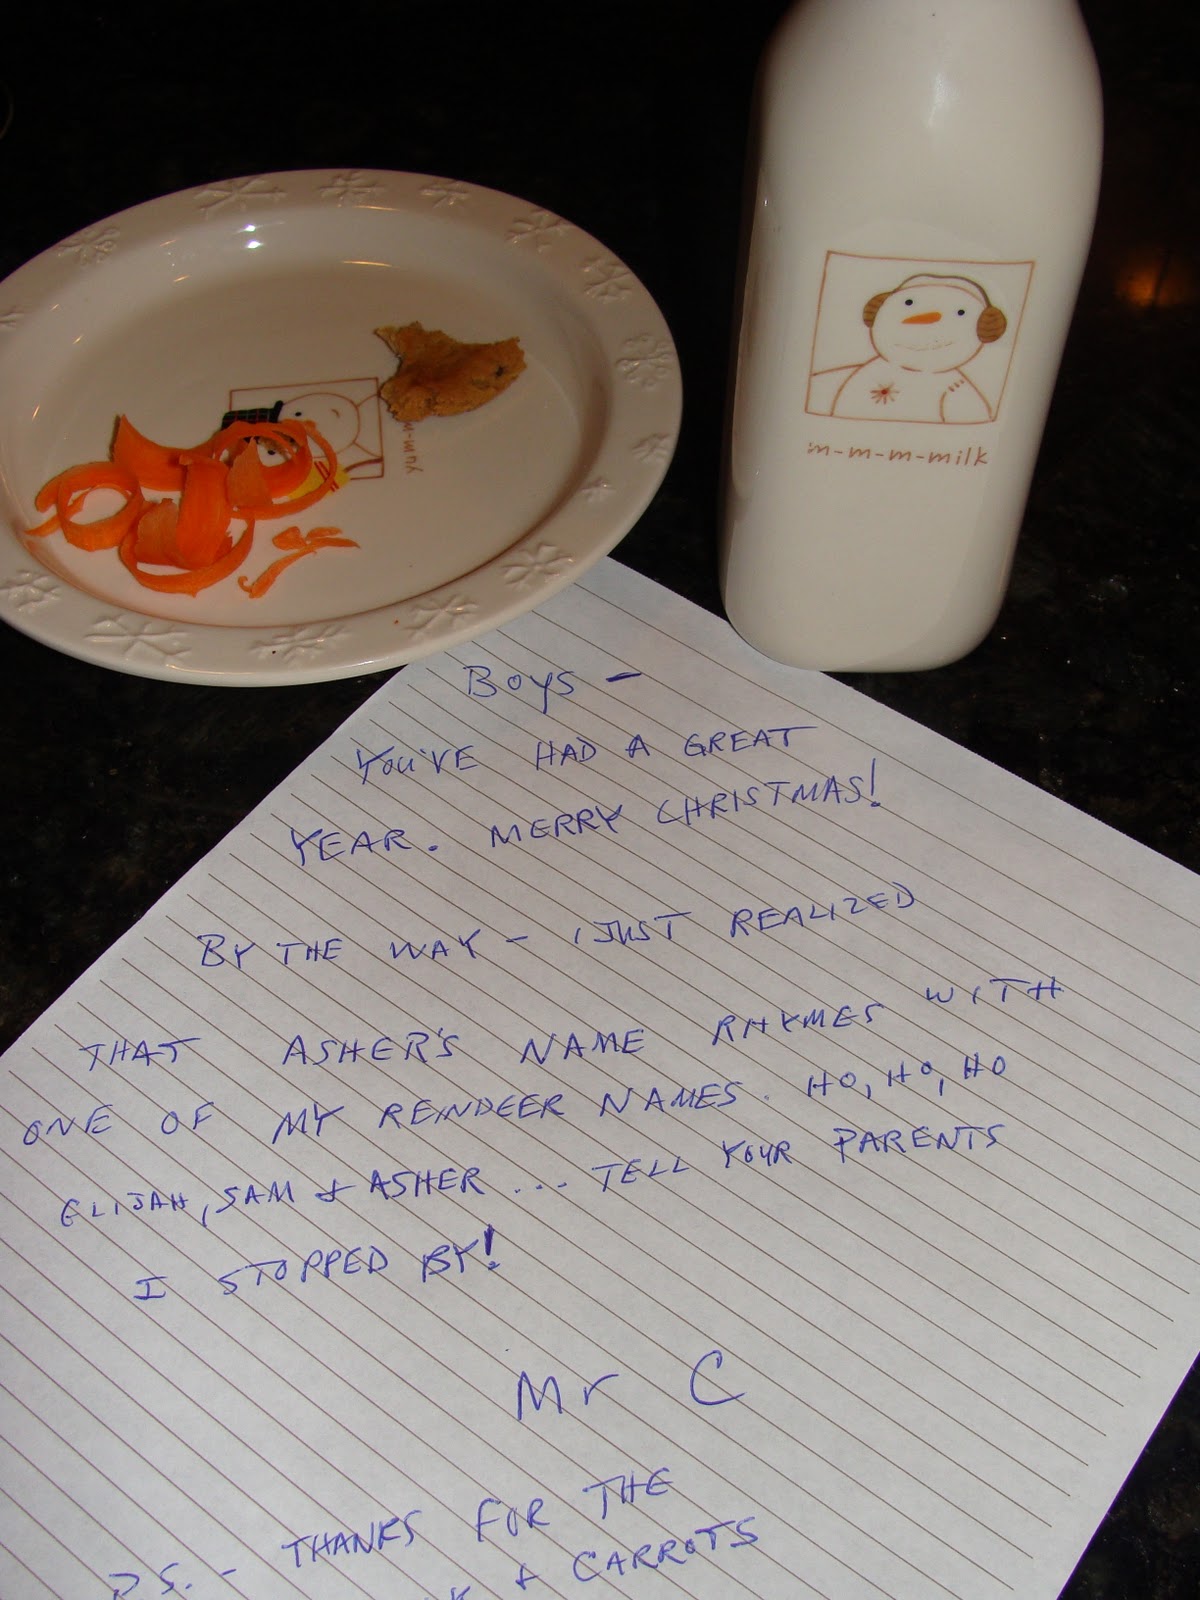 m-m-m-milk
Boys -
YOU'VE HAD A GREAT
YEAR. MERRY CHRISTMAS!
BY THE WAY - I JUST REALIZED
THAT ASHER'S NAME RHYMES WITH
ONE OF MY REINDEER NAMES. HO, HO, HO
ELIJAH, SAM & ASHER ... TELL YOUR PARENTS
I STOPPED BY!
Mr C
P.S. - THANKS FOR THE
& CARROTS